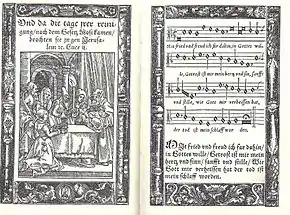 Und da die tage yrer reini-
gung/ nach dem Gesetz Mosi kamen/
brachten sie jn gen Jerusa-
lem ꝛc. Luce ij.
Mit fried und freud ich far dahin, in Gottes wil-
le, Getrost ist mir mein hertz und sin, sanfft
und stille, wie Gott mir verheissen hat,
der tod ist mein schlaff wor den.
Mit fried und freud ich far dahin/
in Gottes wille/ Getrost ist mir mein
hertz und sinn/ sanfft und stille/ Wie
Gott mir verheissen hat der tod ist
mein schlaff worden.